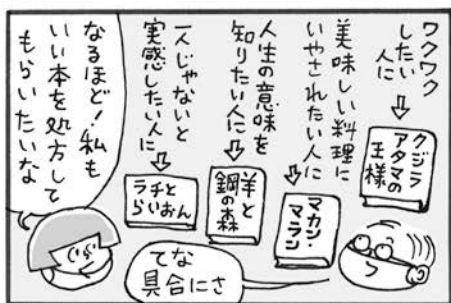 ワクワク
したい
人に
クジラ
アタマの
王様
美味しい料理に
いやされたい人に
マカン・
マラン
人生の意味を
知りたい人に
羊と
鋼の森
一人じゃないと
実感したい人に
ラチと
らいおん
てな
具合にさ
なるほど!私も
いい本を処方して
もらいたいな